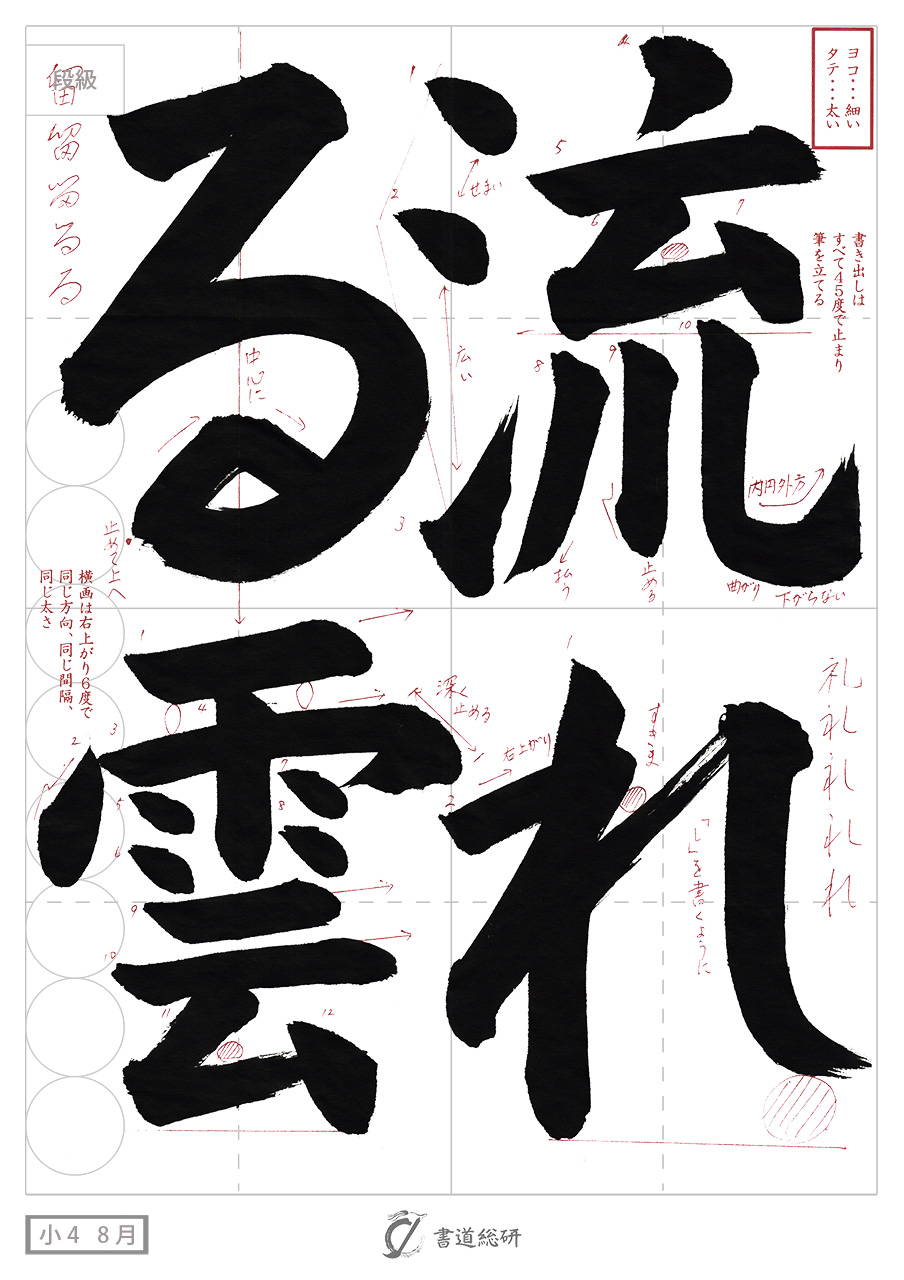 流れ
る雲
ヨコ・・・細い
タテ・・・太い
書き出しは
すべて45度で止まり
筆を立てる
せまい
広い
内円外方
曲がり
下がらない
止める
払う
中心に
止めて上へ
横画は右上がり6度で
同じ方向、同じ間隔、
同じ太さ
深く
止める
右上がり
すきま
「し」を書くように
礼
礼
れ
留
留
る
る
段級
1
2
3
4
5
6
7
8
9
10
1
2
1
2
3
4
5
6
7
8
9
10
11
12
小4 8月
書道総研